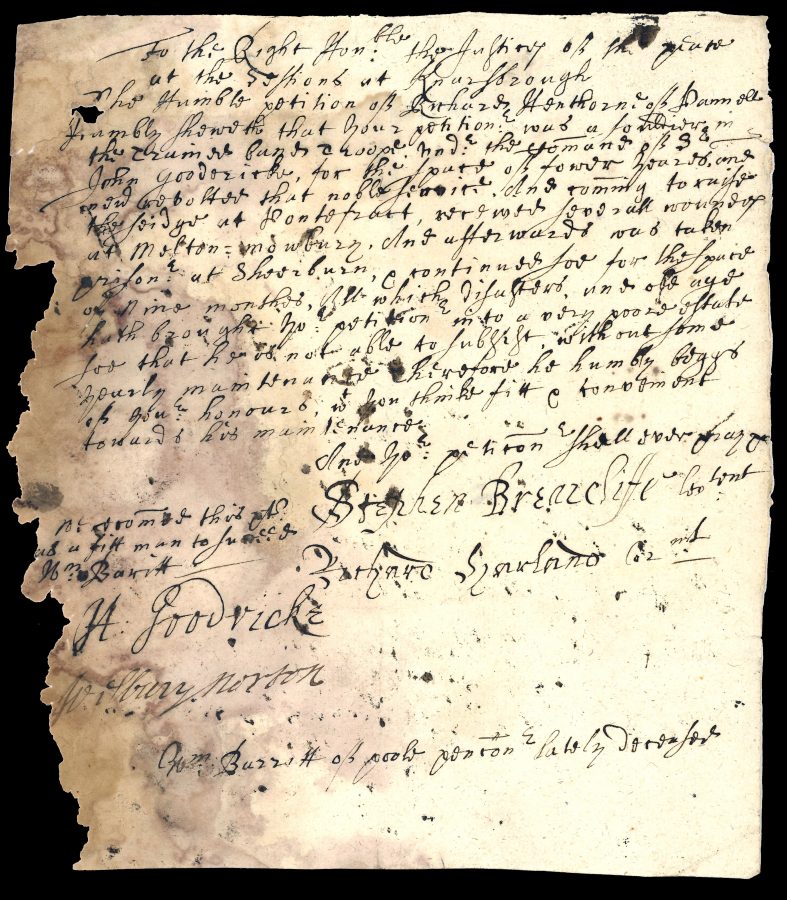 To the Right Hon:ble the Justices of the peace
at the Sessions at Knarsbrough
The Humble petition of Richard Henthorne of Pannell
Humbly sheweth that your petitionr was a souldier in
the Trained band Troope undr the Comand of Sr
John Goodericke, for the space of fower yeares, and
never revolted that noble service. And coming to raise
the seidge at Pontefract, received severall wounds
at Melton-Mowbury, And afterwards was taken
prisonr at Sheerburn, & continued soe for the space
of Nine monthes, All which disasters, and old age
hath brought yor petitionr into a very poore estate
soe that he is not able to subsist, without some
yearly maintenance Therefore he humbly beggs
of your honours, wt you thinke fitt & convenient
towards his maintenance
And yor peticonr shall ever pray &
Stephen Brearcliffe leotent
we recomed this pt
as a fitt man to succeed
Wm Baritt
Richard Harland Cornt
H. Goodricke
Welbury Norton
Wm Barritt of poole penconr lately deceased